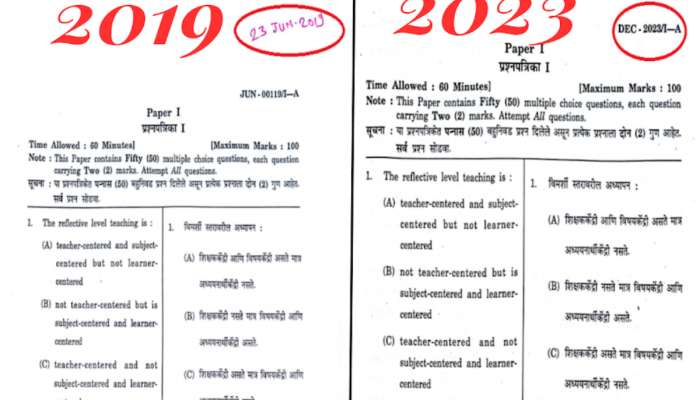 2019
23 JUN-2019
JUN - 00119/I—A
Paper I
प्रश्नपत्रिका I
Time Allowed : 60 Minutes] [Maximum Marks : 100
Note : This Paper contains Fifty (50) multiple choice questions, each question
carrying Two (2) marks. Attempt All questions.
सूचना : या प्रश्नपत्रिकेत पन्नास (50) बहुनिवड प्रश्न दिलेले असून प्रत्येक प्रश्नाला दोन (2) गुण आहेत.
सर्व प्रश्न सोडवा.
1. The reflective level teaching is :
(A) teacher-centered and subject-
centered but not learner-
centered
(B) not teacher-centered but is
subject-centered and learner-
centered
(C) teacher-centered and not
subject-centered and learner-
1. विमर्शी स्तरावरील अध्यापन :
(A) शिक्षककेंद्री आणि विषयकेंद्री असते मात्र
अध्ययनार्थीकेंद्री नसते.
(B) शिक्षककेंद्री नसते मात्र विषयकेंद्री आणि
अध्ययनार्थीकेंद्री असते.
(C) शिक्षककेंद्री असते मात्र विषयकेंद्री आणि
2023
DEC - 2023/I—A
Paper I
प्रश्नपत्रिका I
Time Allowed : 60 Minutes] [Maximum Marks : 100
Note : This Paper contains Fifty (50) multiple choice questions, each question
carrying Two (2) marks. Attempt All questions.
सूचना : या प्रश्नपत्रिकेत पन्नास (50) बहुनिवड प्रश्न दिलेले असून प्रत्येक प्रश्नाला दोन (2) गुण आहेत.
सर्व प्रश्न सोडवा.
1. The reflective level teaching is :
(A) teacher-centered and subject-
centered but not learner-
centered
(B) not teacher-centered but is
subject-centered and learner-
centered
(C) teacher-centered and not
subject-centered and learner-
1. विमर्शी स्तरावरील अध्यापन :
(A) शिक्षककेंद्री आणि विषयकेंद्री असते मात्र
अध्ययनार्थीकेंद्री नसते.
(B) शिक्षककेंद्री नसते मात्र विषयकेंद्री आणि
अध्ययनार्थीकेंद्री असते.
(C) शिक्षककेंद्री असते मात्र विषयकेंद्री आणि
अध्ययनार्थीकेंद्री नसते.